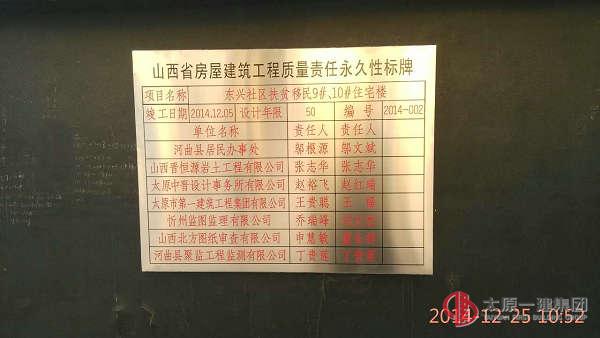 山西省房屋建筑工程质量责任永久性标牌
项目名称 东兴社区扶贫移民9#、10#住宅楼
竣工日期 2014.12.05 设计年限 50 编号 2014-002
单位名称 责任人 责任人
河曲县居民办事处 邬根源 邬文斌
山西晋恒源岩土工程有限公司 张志华 张志华
太原中晋设计事务所有限公司 赵裕飞 赵红瑞
太原市第一建筑工程集团有限公司 王贵聪 王
忻州监图监理有限公司 乔瑞峰
山西北方图纸审查有限公司 申慧敏
河曲县聚监工程监测有限公司 丁贵莲
太原一建集团
TAIYUAN FIRST BUILDING GROUP
2014-12-25 10:52